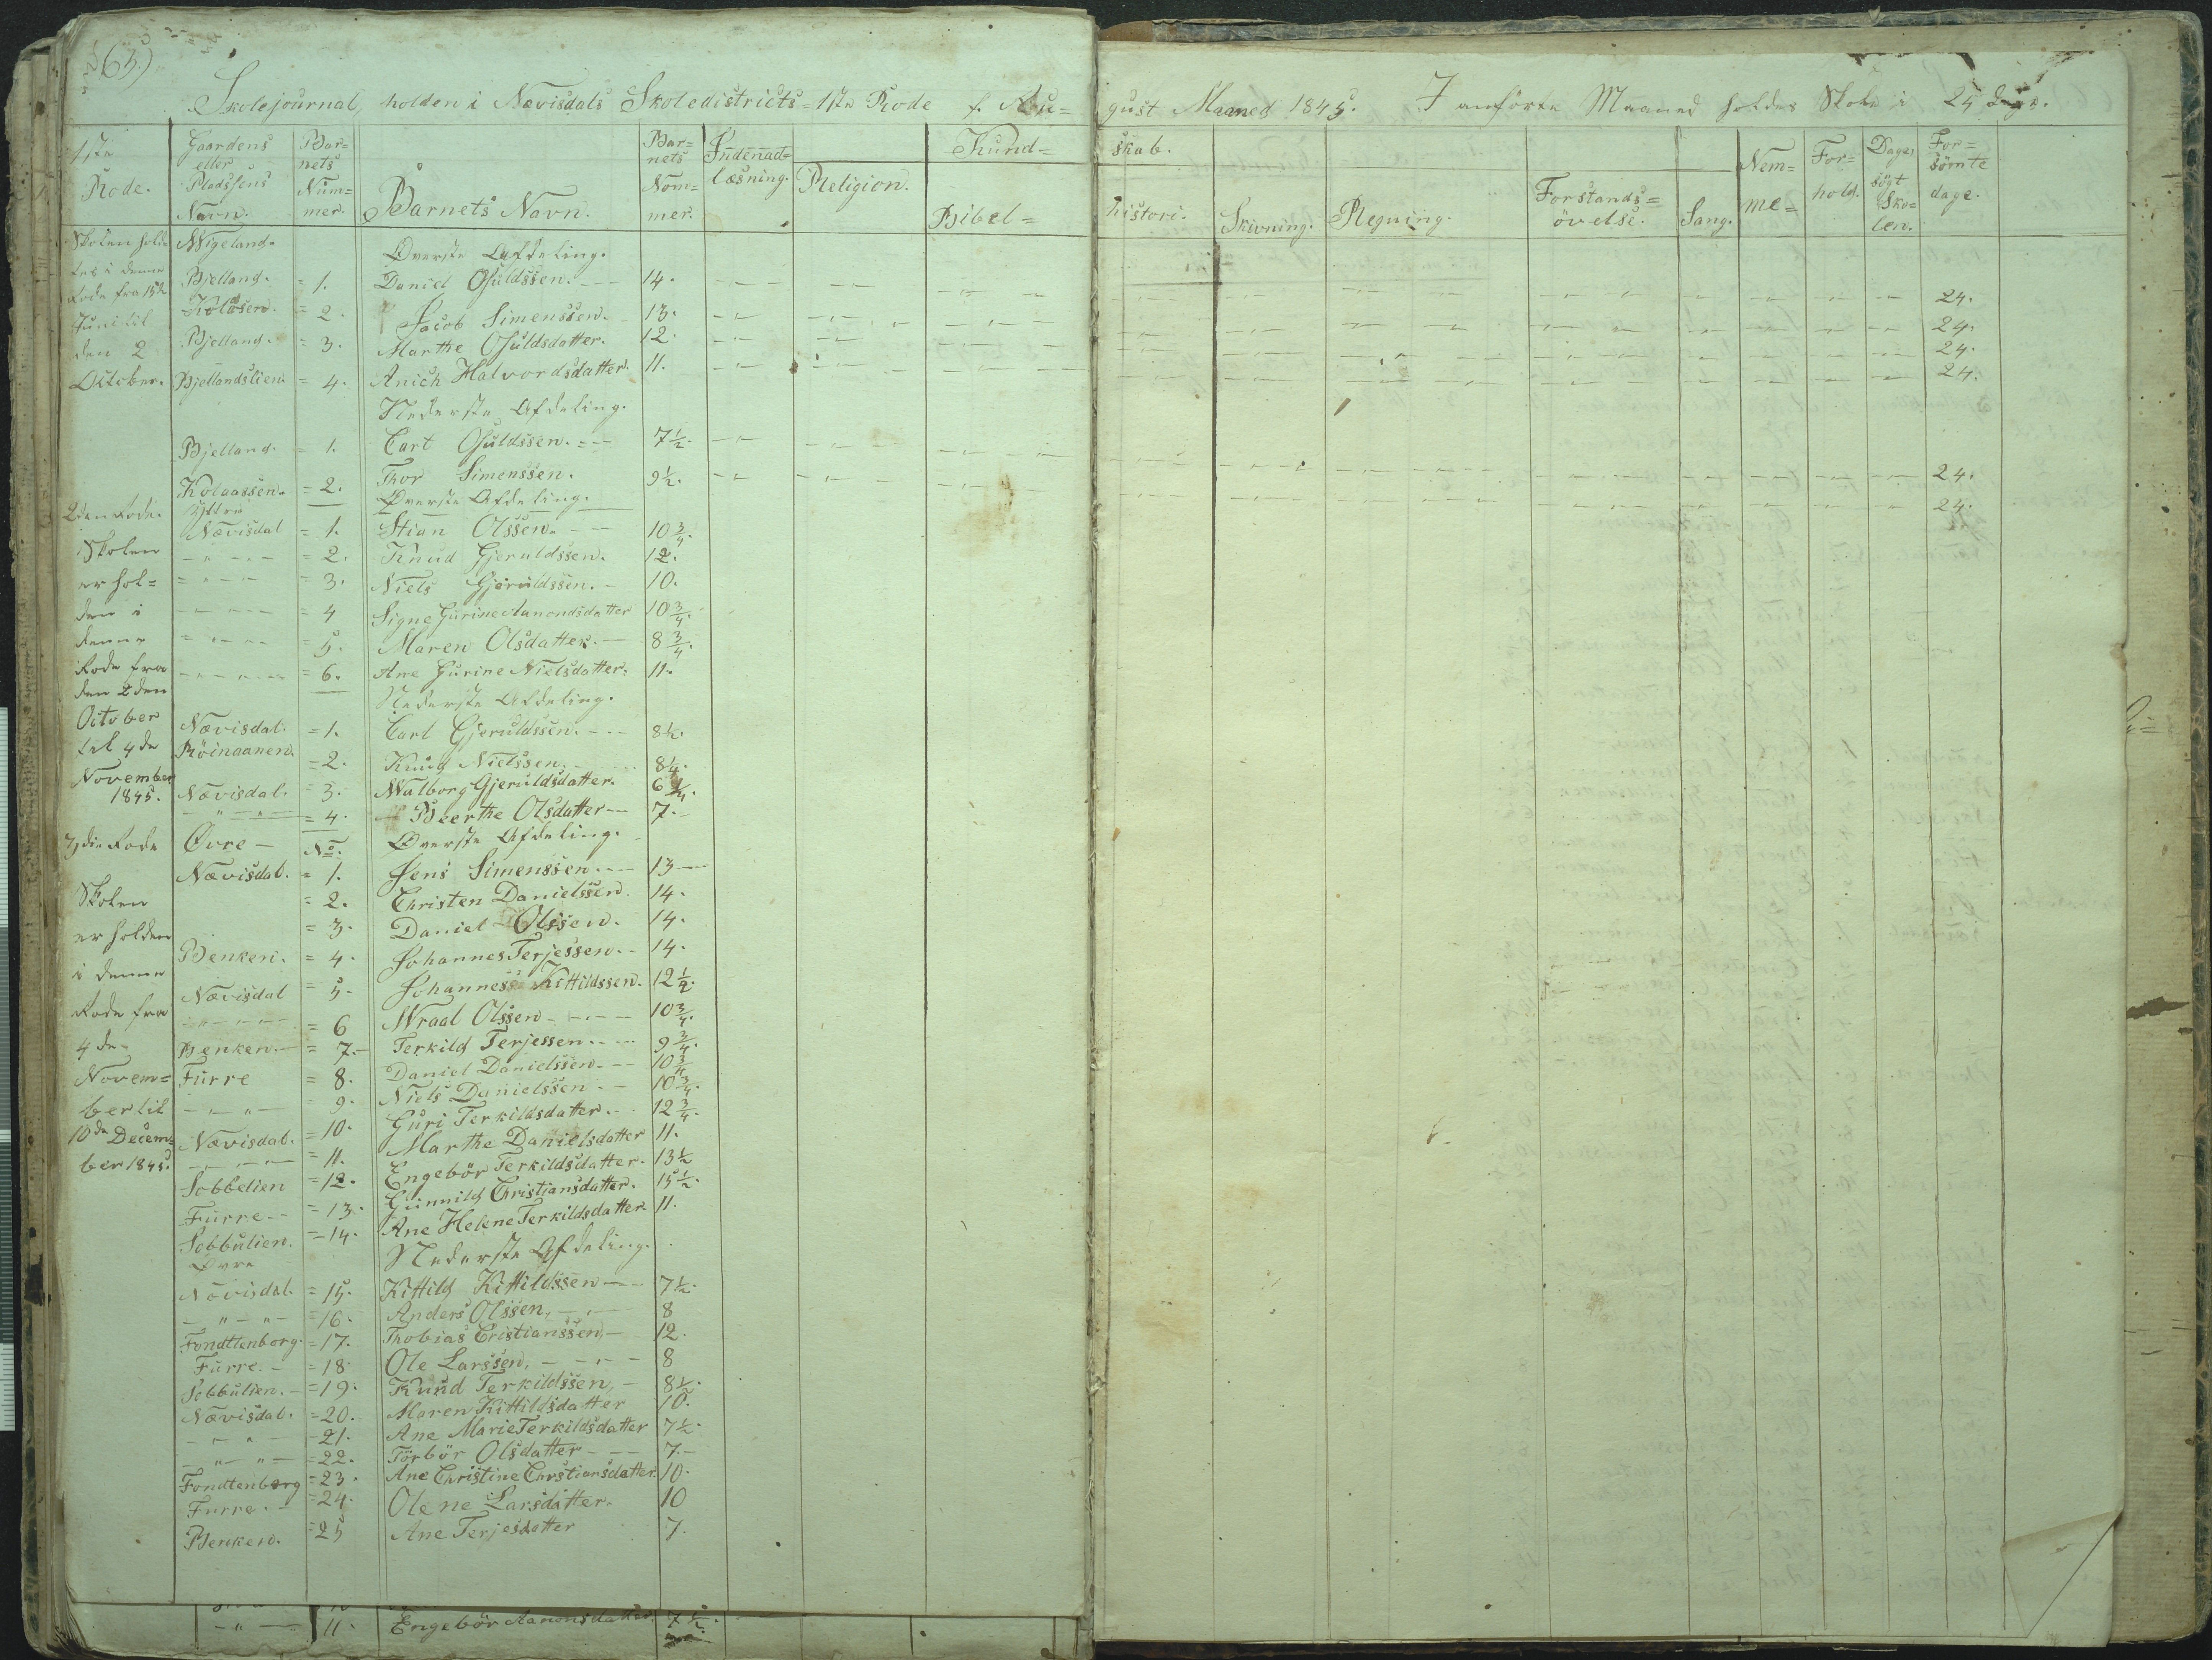 65.)
Skolejournal, holden i Nævisdals Skoledistricts 1ste Rode f. Au= gust Maaned 1845. I anförte Maaned holdes Skole i 24 dage.
1ste Rode. | Gaardens eller Pladssens Navn. | Bar= nets Num= mer. | Barnets Navn. | Bar= nets Nom= mer. | Indenad= læsning. | Religion. | Kund= skab. | Bibel= histori. | Skivning. | Regning. | Forstands= övelse. | Sang. | Nem= me= | For= hold. | Dage, sögt Sko= len. | For= sömte dage.
Skolen holdes i denne Rode fra 15de Juni til den 2 October.
Wigeland. Øverste Afdeling.
Bjelland. = 1. Daniel Osuldssen. 14. 24.
Kolösen. = 2. Jacob Simenssen. 13. 24.
Bjelland. = 3. Marthe Osuldsdatter. 12. 24.
Bjellandslien. = 4. Anich Halvordsdatter. 11. 24.
Nederste Afdeling.
Bjelland. = 1. Carl Osuldssen. 7 1/2. 24.
Kolaassen. = 2. Thor Simenssen. 9 1/2. 24.
2den Rode. Skolen er hol= den i denne Rode fra den 2den October til 4de November 1845.
Yttre Øverste Afdeling.
Nævisdal = 1. Stian Olssen. 10 3/4.
= 2. Knud Gjeruldssen. 12.
= 3. Niels Gjeruldssen. 10.
= 4 Signe Gurine Aanondsdatter 10 3/4.
= 5. Maren Olsdatter. 8 3/4.
= 6. Ane Gurine Nielsdatter. 11.
Nederste Afdeling.
Nævisdal. = 1. Carl Gjeruldssen. 8 1/2.
Röinaanen. = 2. Knud Nielssen. 8 1/4.
Nævisdal. = 3. Walborg Gjeruldsdatter. 6 3/4.
= 4. Beerthe Olsdatter 7.
3die Rode Skolen er holden i denne Rode fra 4de Novem= ber til 10de Decem= ber 1845.
Øvre No. Øverste Afdeling.
Nævisdal. = 1. Jens Simenssen. 13
= 2. Christen Danielssen. 14.
= 3. Daniel Olssen. 14.
Benken. = 4. Johannes Terjessen. 14.
Nævisdal = 5. Johannes Kittildssen. 12 1/2.
= 6 Wraal Olssen 10 3/4.
Benken. = 7. Terkild Terjessen. 9 3/4.
Furre = 8. Daniel Danielssen. 10 3/4
9. Niels Danielssen 10 3/4.
Nævisdal. = 10. Guri Terkildsdatter. 12 3/4.
= 11. Marthe Danielsdatter 11.
Sobbelien = 12. Engebör Terkildsdatter. 13 1/2
Furre = 13. Gunnild Christiansdatter. 15 1/2.
Sobbulien. = 14. Ane Helene Terkildsdatter 11.
Øvre Nederste Afdeling.
Nævisdal. = 15. Kittild Kittildssen 7 1/2.
= 16. Anders Olssen, 8
Fondtenborg. = 17. Thobias Cristianssen, 12.
Furre. = 18. Ole Larssen, 8
Sobbulien. = 19. Knud Terkildssen, 8 1/2.
Nævisdal. = 20. Maren Kittildsdatter 10.
= 21. Ane Marie Terkildsdatter 7 1/2.
= 22. Törbör Olsdatter 7.
Fondtenborg = 23. Ane Christine Chrstiansdatter 10.
Furre. = 24. Olene Larsdatter. 10
Benken. = 25 Ane Terjesdatter 7.
11. Engebör Aanonsdatter. 7 1/2.